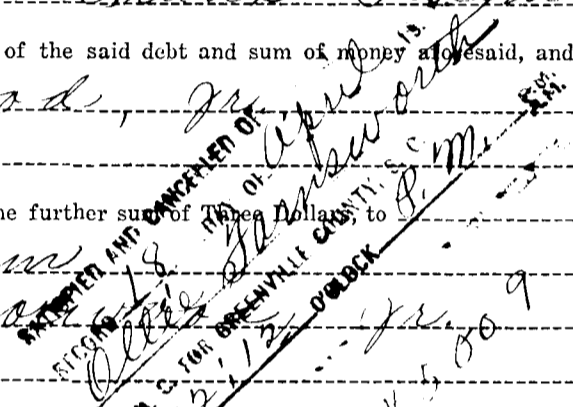 of the said debt and sum of money aforesaid, and
Jr.
the further sum of Three Dollars, to
Jr.
SATISFIED AND CANCELLED OF
RECORD 18 DAY OF April 19
Ollie Farnsworth
M. C. FOR GREENVILLE COUNTY, S. C.
2:12 O'CLOCK P. M.
P.M.
A.M.